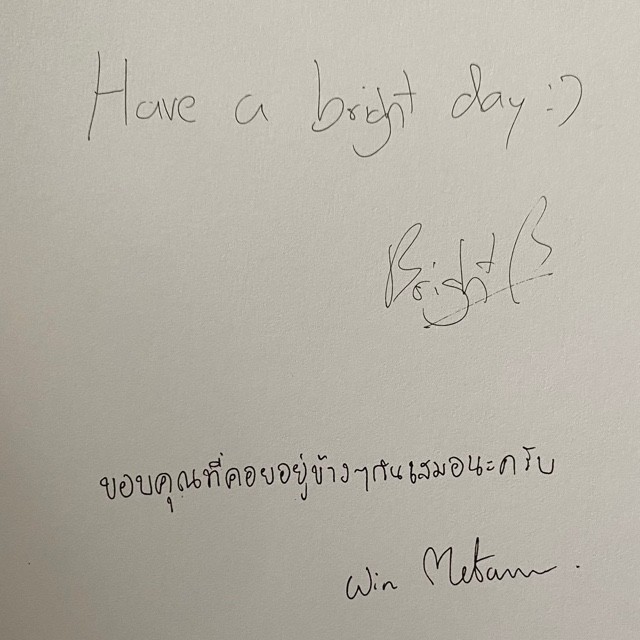 Have a bright day :)
Bright B
ขอบคุณที่คอยอยู่ข้างๆกันเสมอนะครับ
Win Metawin.